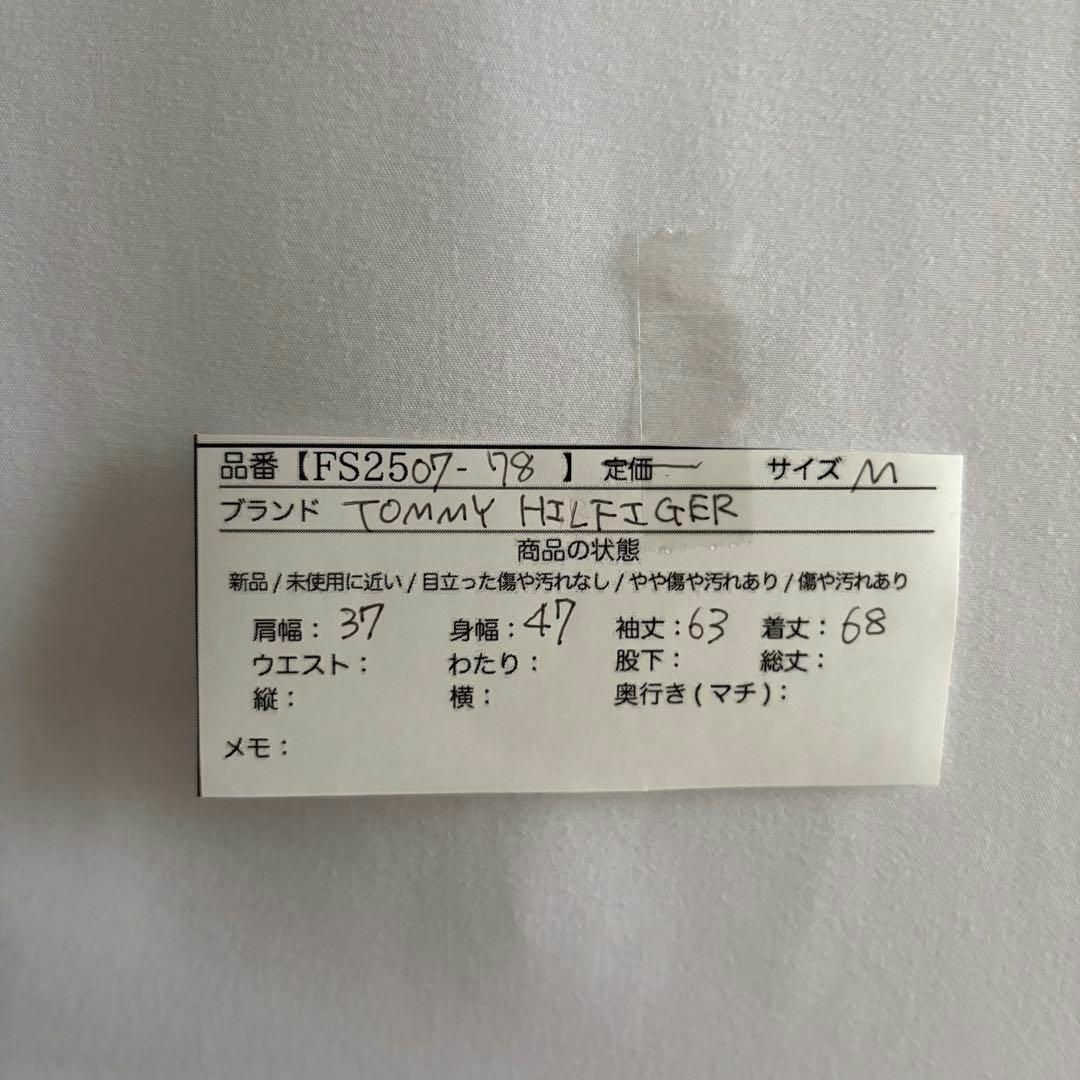 品番【FS2507-78 】 定価ー サイズ M
ブランド TOMMY HILFIGER
商品の状態
新品 / 未使用に近い / 目立った傷や汚れなし / やや傷や汚れあり / 傷や汚れあり
肩幅：37 身幅：47 袖丈：63 着丈：68
ウエスト： わたり： 股下： 総丈：
縦： 横： 奥行き ( マチ )：
メモ：